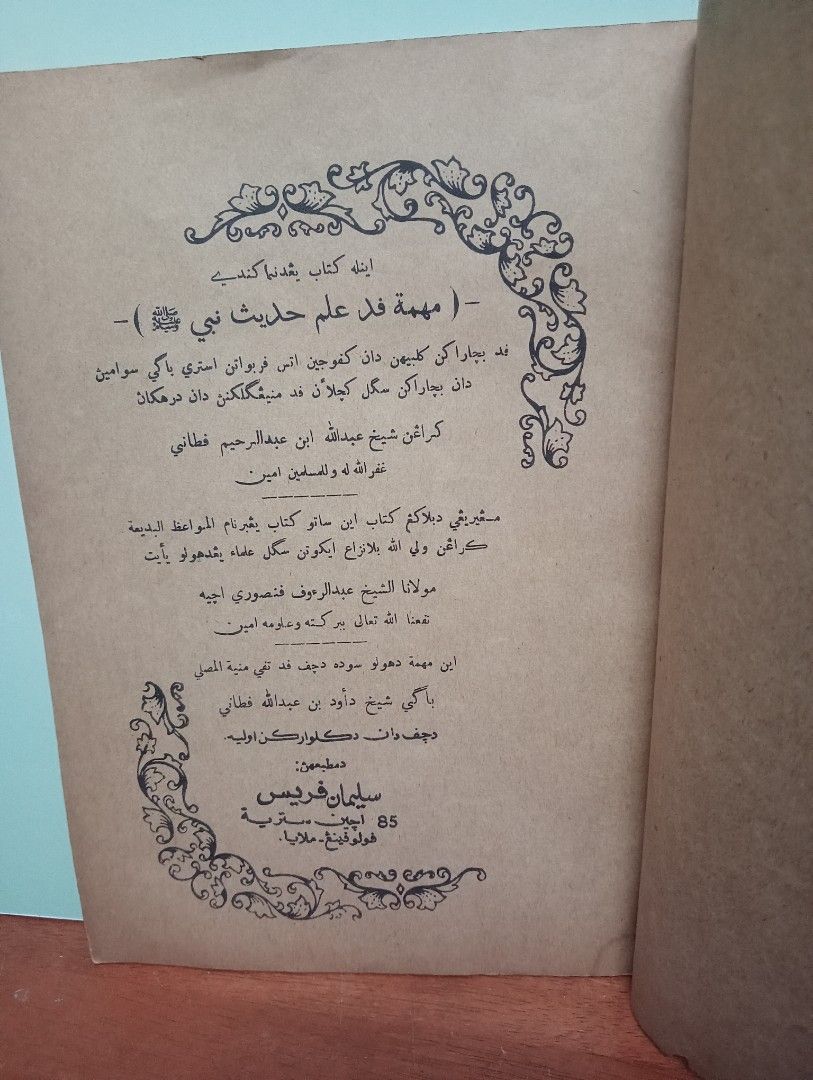 اينله كتاب يڠدنماكندي
-( مهمة فد علم حديث نبي ﷺ )-
فد بچاراكن كلبيهن دان كفوجين اتس فربواتن استري باكي سوامين
دان بچاراكن سگل كچلاٴن فد منيڠگلكنن دان درهكان
كراڠن شيخ عبدالله ابن عبدالرحيم فطاني
غفر الله له وللمسلمين امين
مڠيريڠي دبلاكڠ كتاب اين ساتو كتاب يڠبرنام المواعظ البديعة
كراڠن ولي الله بلانزاع ايكوتن سگل علماء يڠدهولو يأيت
مولانا الشيخ عبدالرءوف فنصوري اچيه
نفعنا الله تعالى ببركته وعلومه امين
اين مهمة دهولو سوده دچف فد تفي منية المصلي
باكي شيخ دأود بن عبدالله فطاني
دچف دان دكلواركن اوليه.
دمطبعهن:
سليمان فريس
85 اچين ستريت
فولوفينڠ - ملايا.